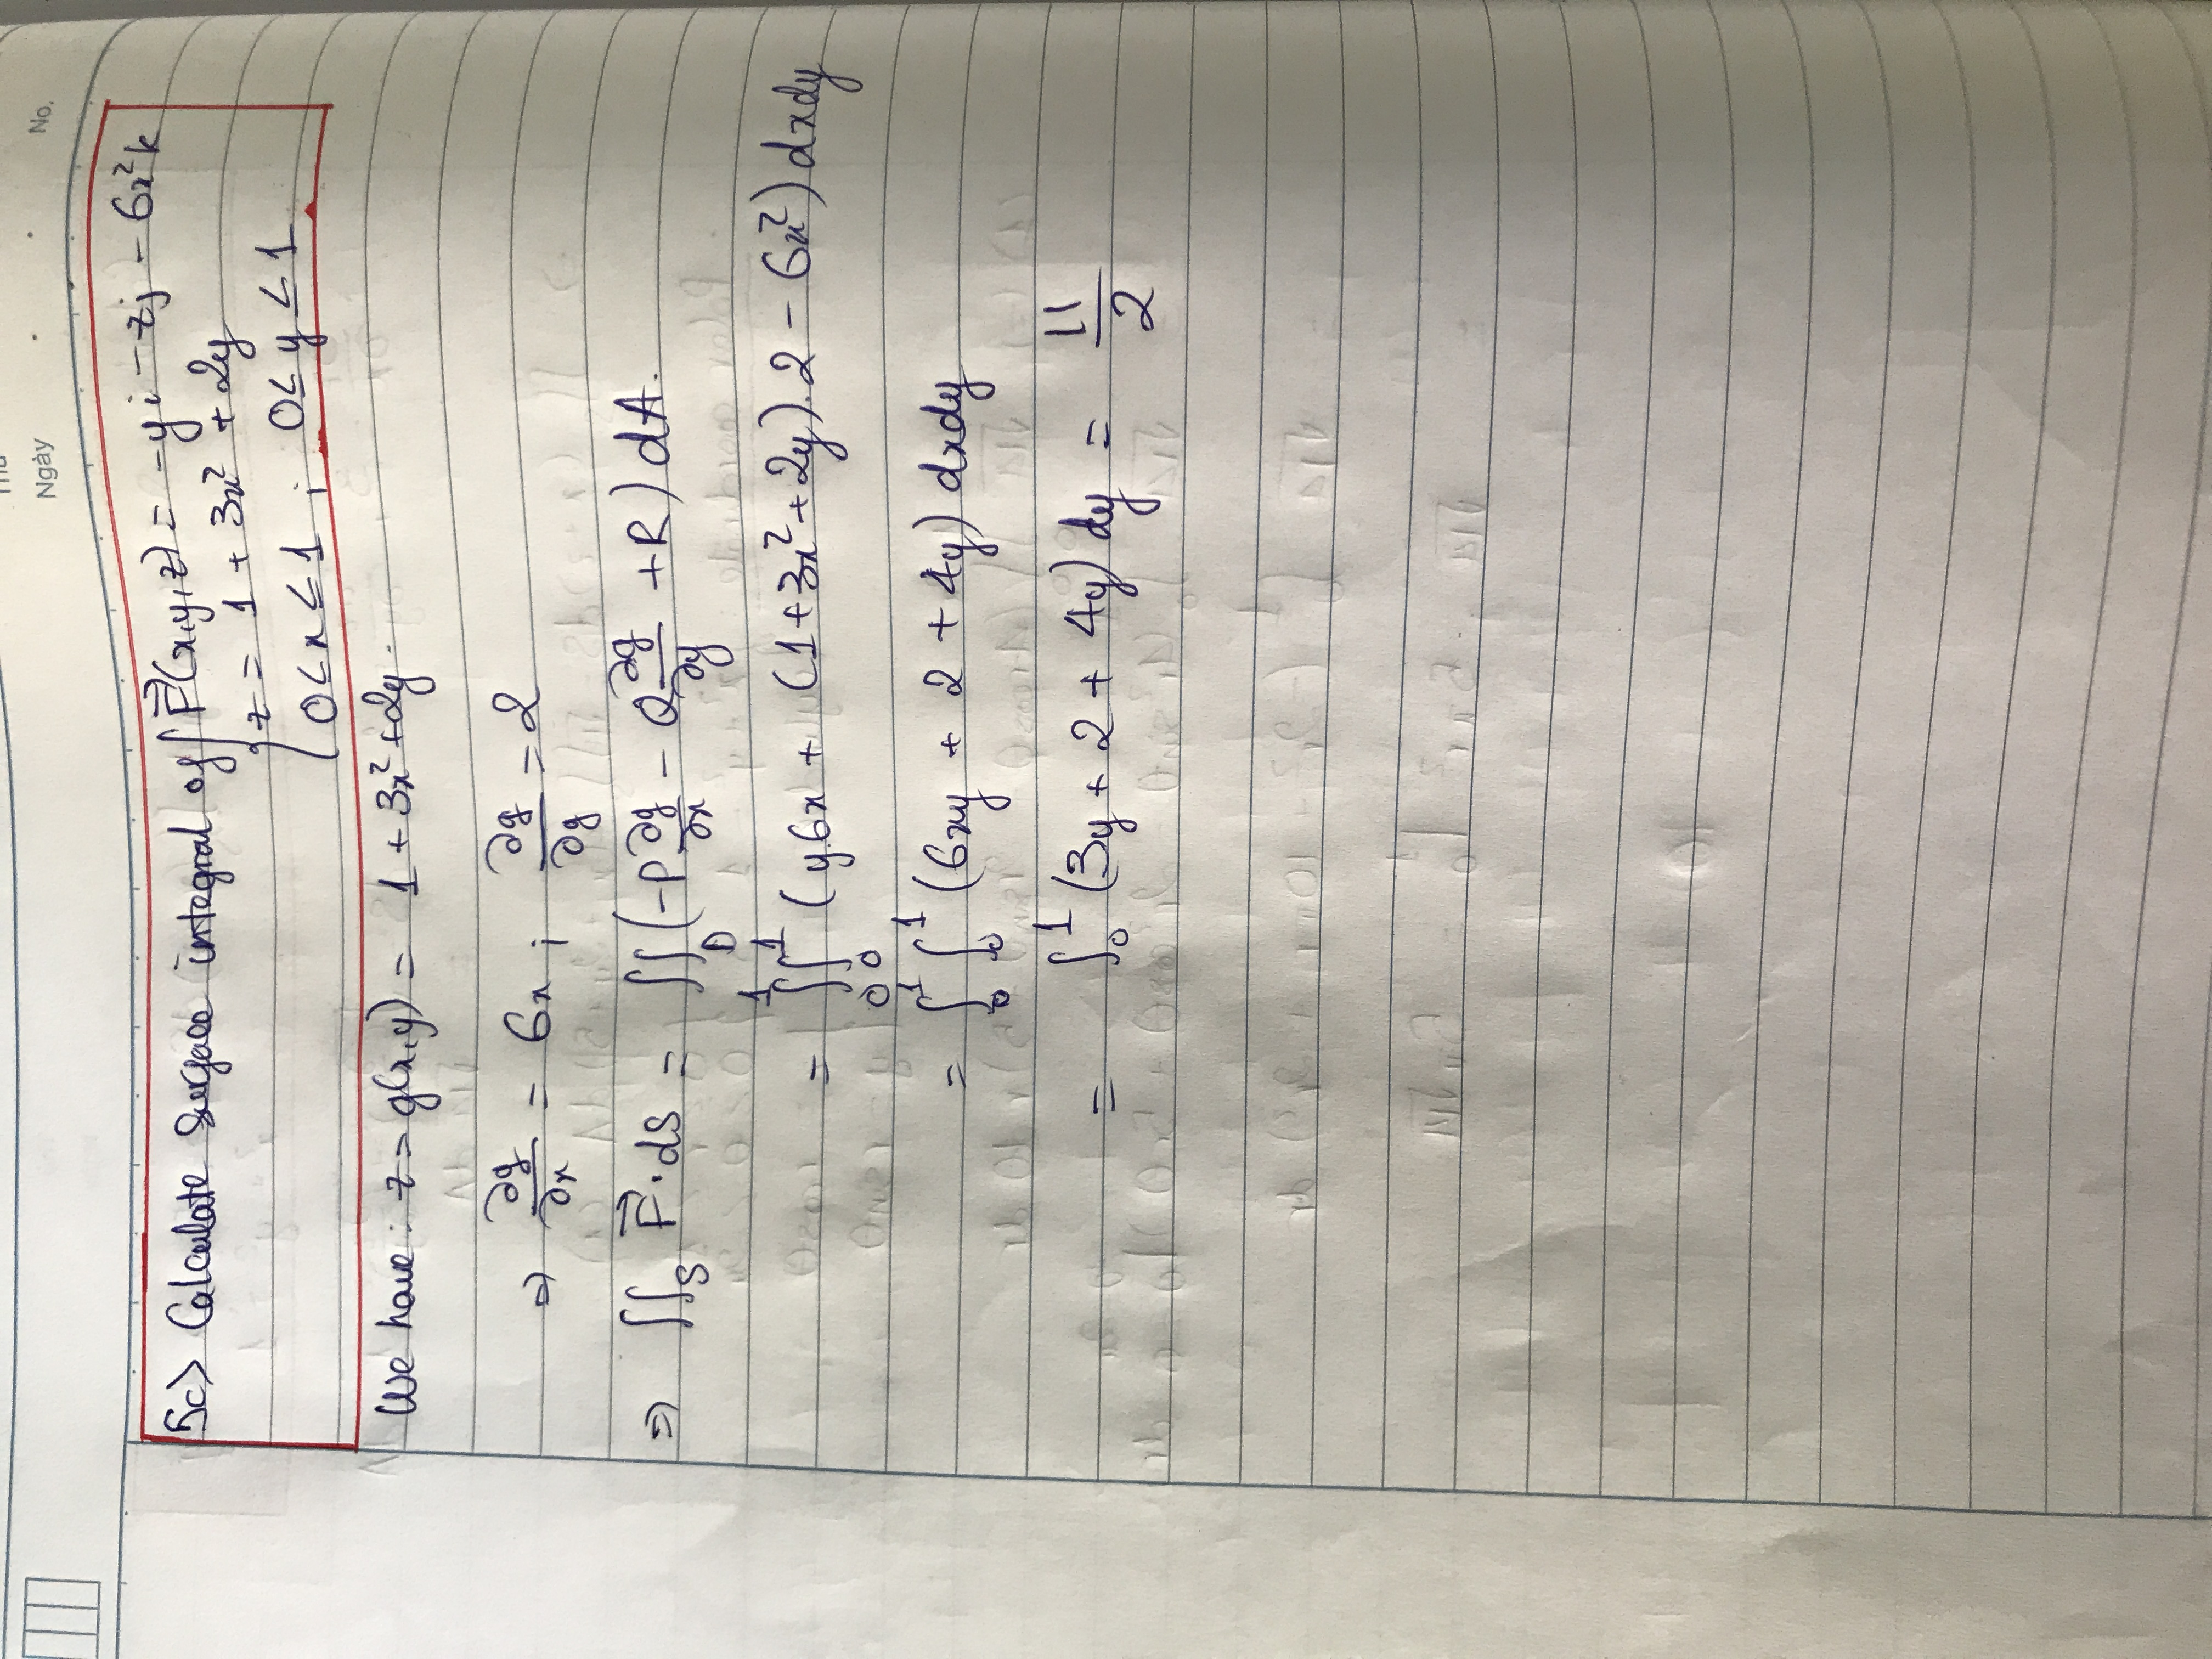 Thứ
Ngày No.
5c> Calculate Surface integral of { F⃗(x,y,z) = -yi - zj - 6x²k
z = 1 + 3x² + 2y
0 ≤ x ≤ 1 ; 0 ≤ y ≤ 1
We have : z = g(x,y) = 1 + 3x² + 2y.
=> ∂g/∂x = 6x ; ∂g/∂y = 2
=> ∬_S F⃗·dS = ∬_D (-P ∂g/∂x - Q ∂g/∂y + R) dA.
= ∫₀¹∫₀¹ (y.6x + (1+3x²+2y).2 - 6x²) dxdy
= ∫₀¹ ∫₀¹ (6xy + 2 + 4y) dxdy
= ∫₀¹ (3y + 2 + 4y) dy = 11/2